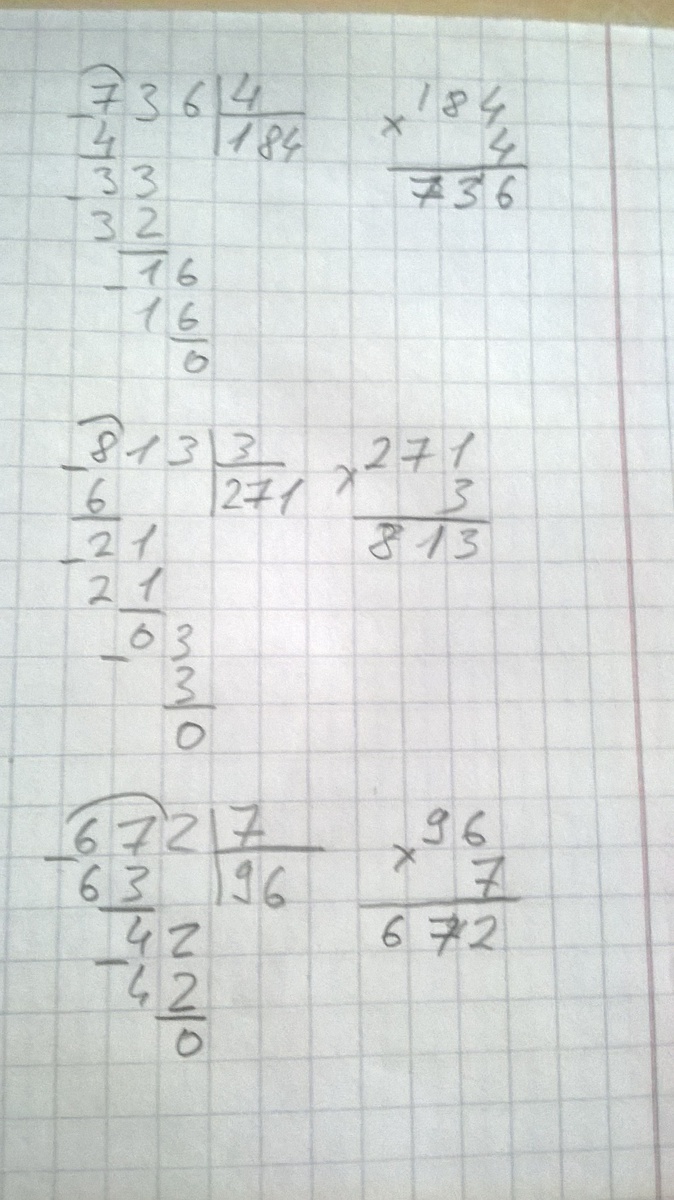 736 | 4
- 4 | 184
- 33
32
- 16
16
0
184
× 4
736
813 | 3
- 6 | 271
- 21
21
- 03
3
0
271
× 3
813
672 | 7
- 63 | 96
- 42
42
0
96
× 7
672